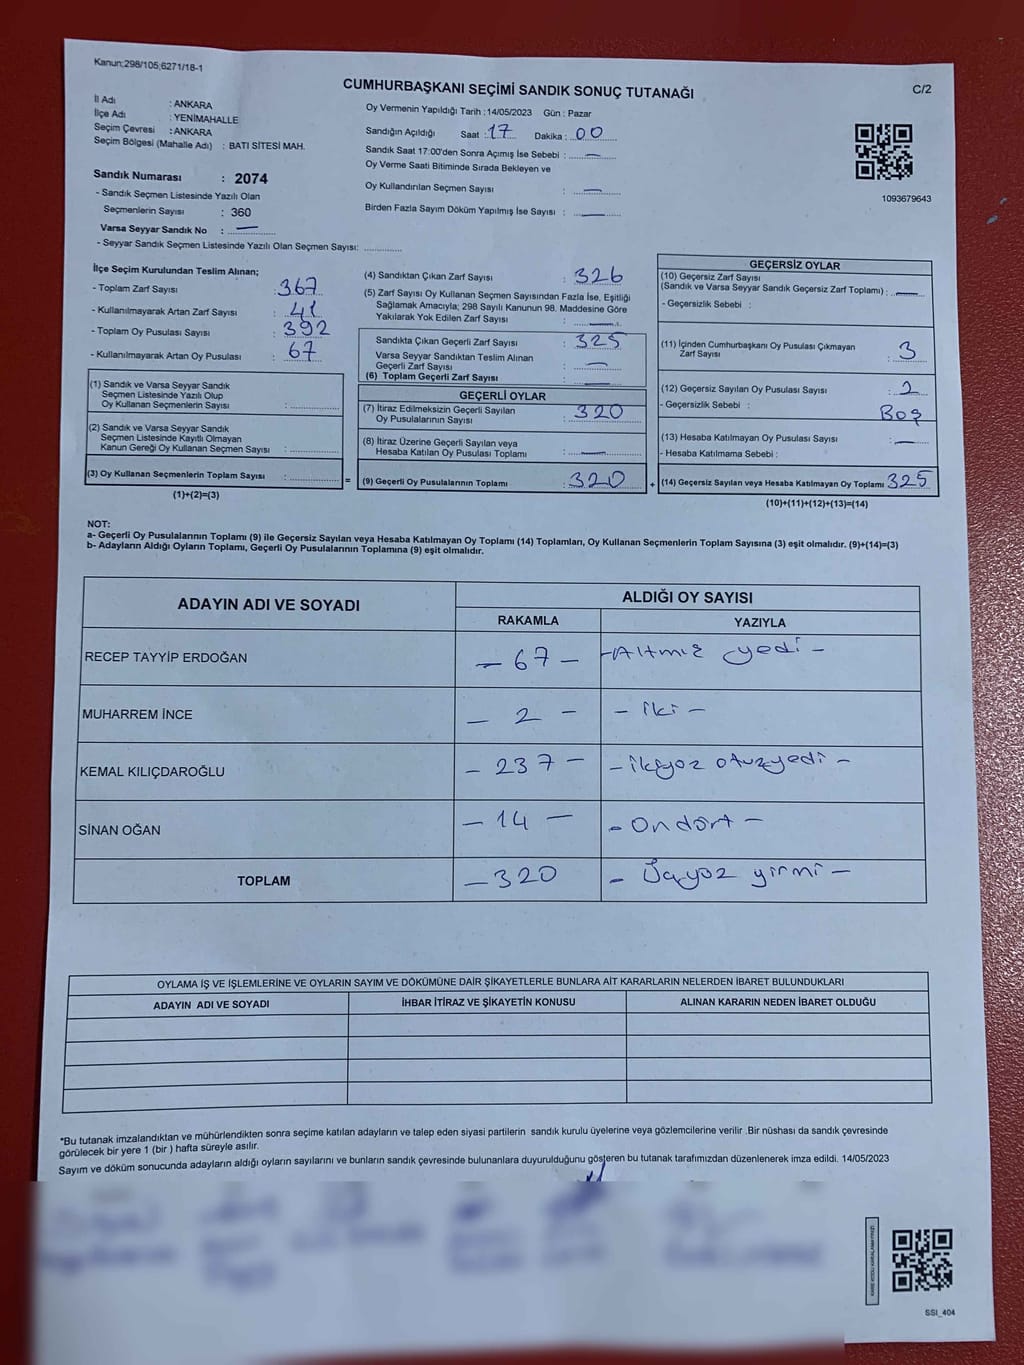 Kanun;298/105;6271/18-1
CUMHURBAŞKANI SEÇİMİ SANDIK SONUÇ TUTANAĞI
C/2
İl Adı : ANKARA
İlçe Adı : YENİMAHALLE
Seçim Çevresi : ANKARA
Seçim Bölgesi (Mahalle Adı) : BATI SİTESİ MAH.
Sandık Numarası : 2074
- Sandık Seçmen Listesinde Yazılı Olan
Seçmenlerin Sayısı : 360
Varsa Seyyar Sandık No : —
- Seyyar Sandık Seçmen Listesinde Yazılı Olan Seçmen Sayısı: ............
Oy Vermenin Yapıldığı Tarih : 14/05/2023 Gün : Pazar
Sandığın Açıldığı Saat : 17 Dakika : 00
Sandık Saat 17:00'den Sonra Açımış İse Sebebi : —
Oy Verme Saati Bitiminde Sırada Bekleyen ve
Oy Kullandırılan Seçmen Sayısı : —
Birden Fazla Sayım Döküm Yapılmış İse Sayısı : —
1093679643
İlçe Seçim Kurulundan Teslim Alınan;
- Toplam Zarf Sayısı : 367
- Kullanılmayarak Artan Zarf Sayısı : 41
- Toplam Oy Pusulası Sayısı : 392
- Kullanılmayarak Artan Oy Pusulası : 67
(1) Sandık ve Varsa Seyyar Sandık
Seçmen Listesinde Yazılı Olup
Oy Kullanan Seçmenlerin Sayısı :
(2) Sandık ve Varsa Seyyar Sandık
Seçmen Listesinde Kayıtlı Olmayan
Kanun Gereği Oy Kullanan Seçmen Sayısı :
(3) Oy Kullanan Seçmenlerin Toplam Sayısı : =
(1)+(2)=(3)
(4) Sandıktan Çıkan Zarf Sayısı : 326
(5) Zarf Sayısı Oy Kullanan Seçmen Sayısından Fazla İse, Eşitliği
Sağlamak Amacıyla; 298 Sayılı Kanunun 98. Maddesine Göre
Yakılarak Yok Edilen Zarf Sayısı : —
Sandıkta Çıkan Geçerli Zarf Sayısı : 325
Varsa Seyyar Sandıktan Teslim Alınan
Geçerli Zarf Sayısı : —
(6) Toplam Geçerli Zarf Sayısı : —
GEÇERLİ OYLAR
(7) İtiraz Edilmeksizin Geçerli Sayılan
Oy Pusulalarının Sayısı : 320
(8) İtiraz Üzerine Geçerli Sayılan veya
Hesaba Katılan Oy Pusulası Toplamı : —
(9) Geçerli Oy Pusulalarının Toplamı : 320 +
GEÇERSİZ OYLAR
(10) Geçersiz Zarf Sayısı
(Sandık ve Varsa Seyyar Sandık Geçersiz Zarf Toplamı) : —
- Geçersizlik Sebebi :
(11) İçinden Cumhurbaşkanı Oy Pusulası Çıkmayan
Zarf Sayısı : 3
(12) Geçersiz Sayılan Oy Pusulası Sayısı : 2
- Geçersizlik Sebebi : Boş
(13) Hesaba Katılmayan Oy Pusulası Sayısı : —
- Hesaba Katılmama Sebebi :
(14) Geçersiz Sayılan veya Hesaba Katılmayan Oy Toplamı 325
(10)+(11)+(12)+(13)=(14)
NOT:
a- Geçerli Oy Pusulalarının Toplamı (9) ile Geçersiz Sayılan veya Hesaba Katılmayan Oy Toplamı (14) Toplamları, Oy Kullanan Seçmenlerin Toplam Sayısına (3) eşit olmalıdır. (9)+(14)=(3)
b- Adayların Aldığı Oyların Toplamı, Geçerli Oy Pusulalarının Toplamına (9) eşit olmalıdır.
ADAYIN ADI VE SOYADI ALDIĞI OY SAYISI
RAKAMLA YAZIYLA
RECEP TAYYİP ERDOĞAN — 67 — - Altmış yedi -
MUHARREM İNCE — 2 — - iki -
KEMAL KILIÇDAROĞLU — 237 — - ikiyüz otuzyedi -
SİNAN OĞAN — 14 — - Ondört -
TOPLAM — 320 - Üçyüz yirmi -
OYLAMA İŞ VE İŞLEMLERİNE VE OYLARIN SAYIM VE DÖKÜMÜNE DAİR ŞİKAYETLERLE BUNLARA AİT KARARLARIN NELERDEN İBARET BULUNDUKLARI
ADAYIN ADI VE SOYADI İHBAR İTİRAZ VE ŞİKAYETİN KONUSU ALINAN KARARIN NEDEN İBARET OLDUĞU
*Bu tutanak imzalandıktan ve mühürlendikten sonra seçime katılan adayların ve talep eden siyasi partilerin sandık kurulu üyelerine veya gözlemcilerine verilir .Bir nüshası da sandık çevresinde
görülecek bir yere 1 (bir ) hafta süreyle asılır.
Sayım ve döküm sonucunda adayların aldığı oyların sayılarını ve bunların sandık çevresinde bulunanlara duyurulduğunu gösteren bu tutanak tarafımızdan düzenlenerek imza edildi. 14/05/2023
SSI_404